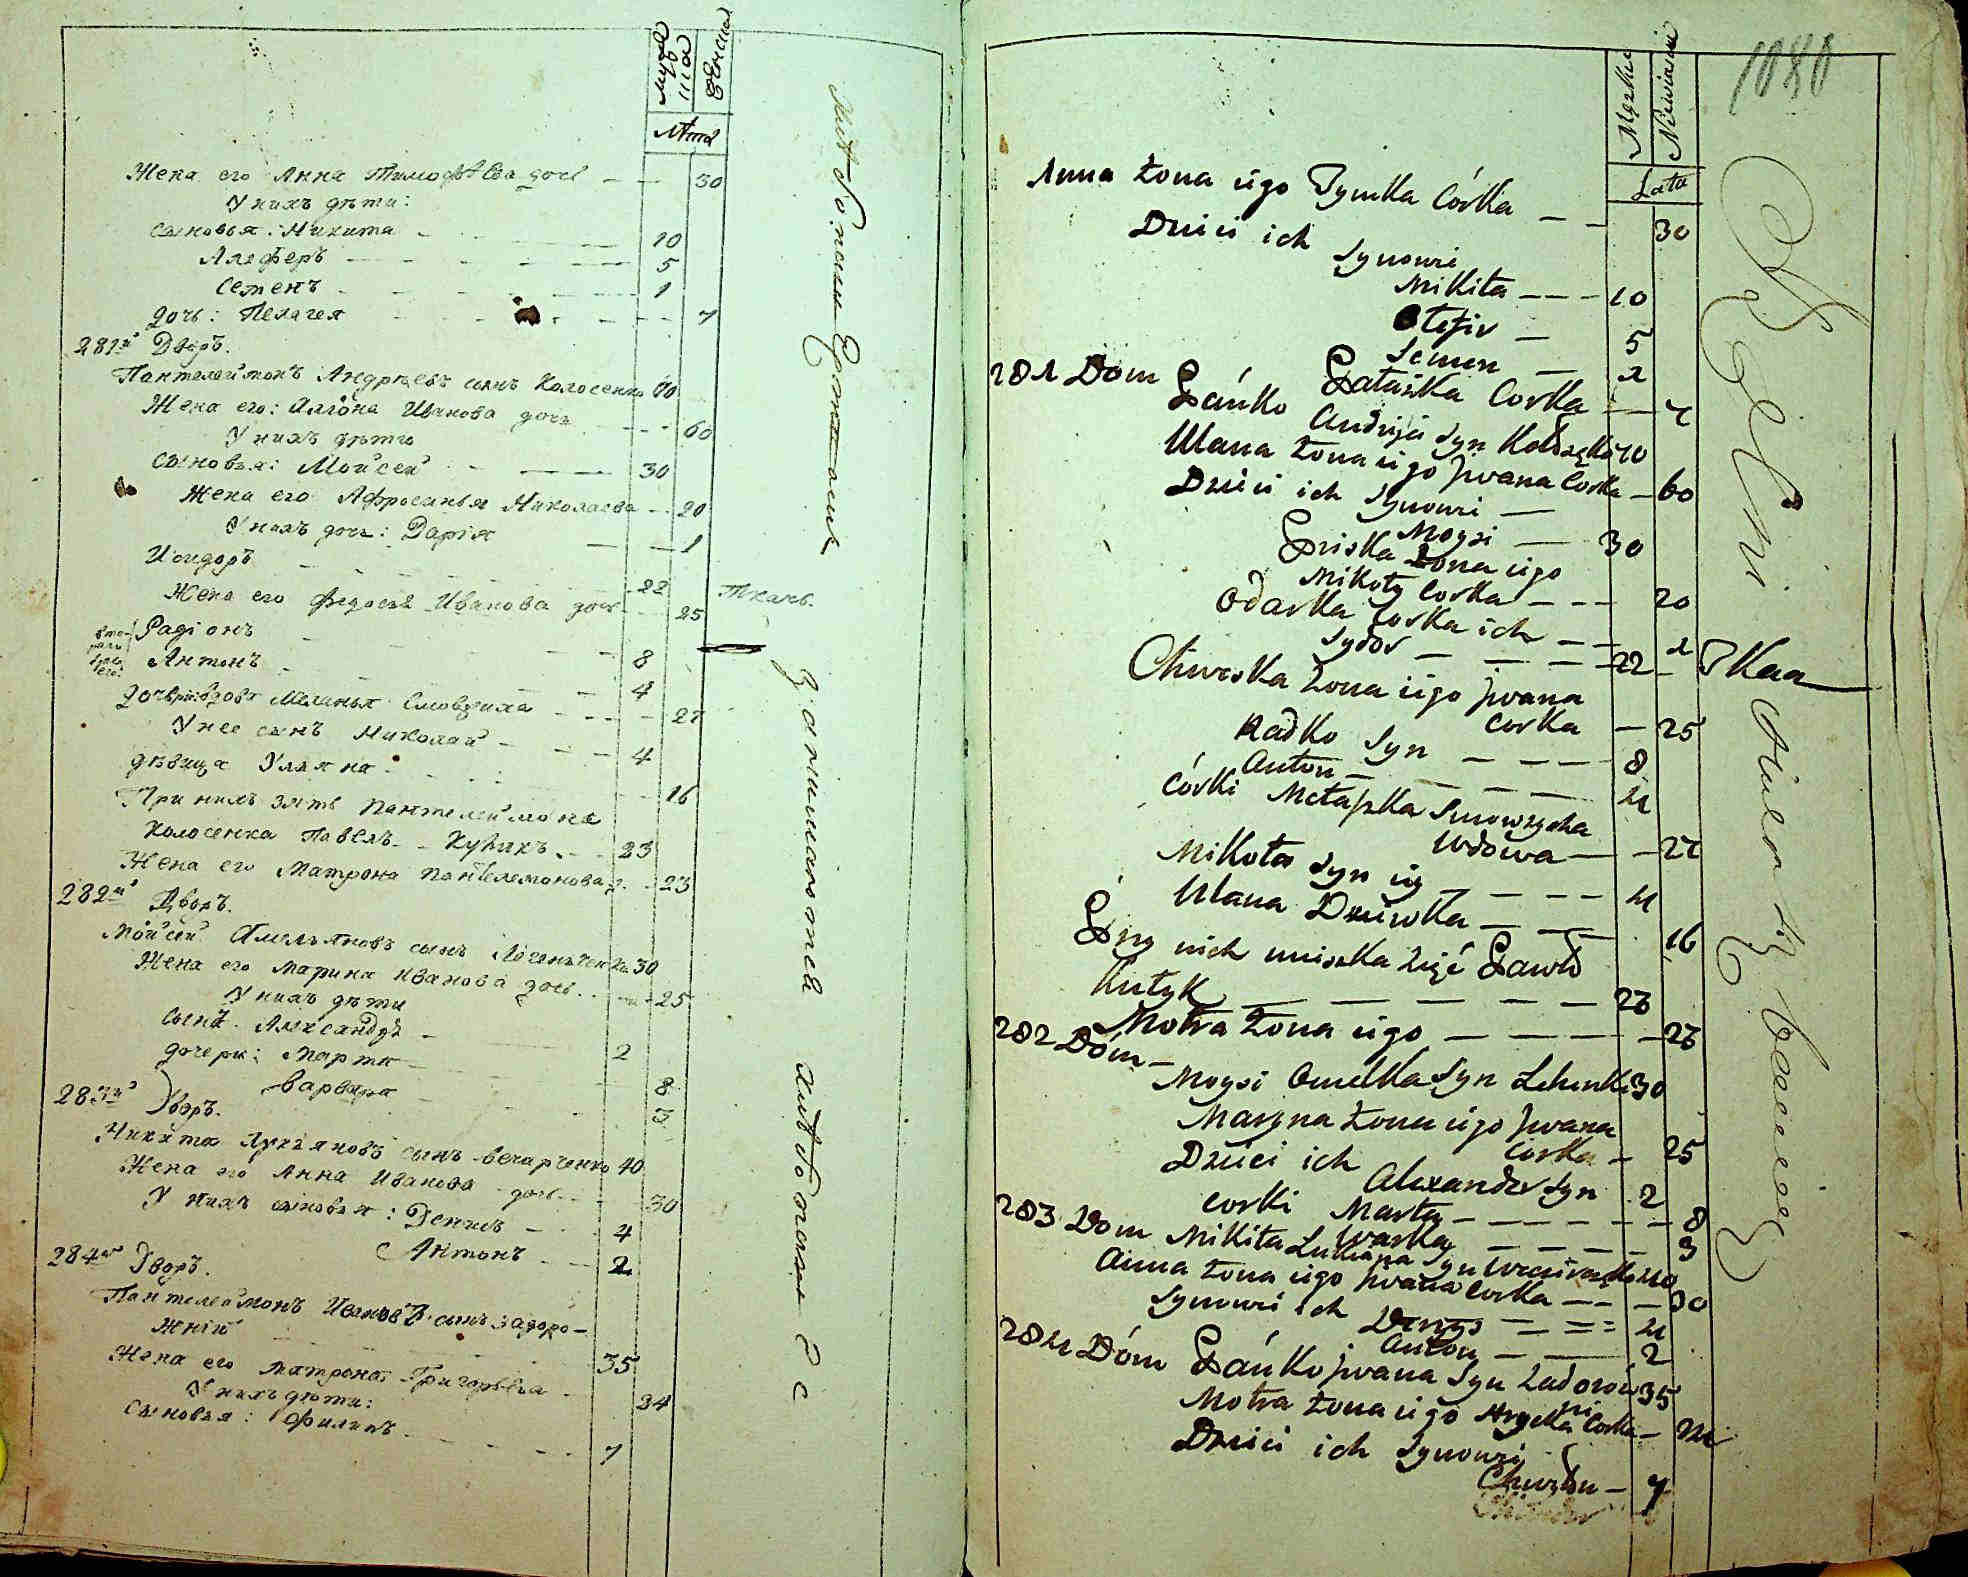 Мужеска
Женска
Лѣта
Жена его Анна Тимофѣева дочь — — 30
У нихъ дѣти:
Сыновья: Никита — 10
Алеферъ — 5
Семенъ — 1
Дочь: Пелагея — 7
281й Дворъ.
Пантелеймонъ Андрѣевъ сынъ Колосенко 70
Жена его: Алиона Иванова дочь — 60
У нихъ дѣти
Сыновья: Мойсей — 30
Жена его Афросинья Николаева — 20
У нихъ дочь: Дарія — 1
Исидоръ — 22
Жена его Федосья Иванова дочь 25
Ткачь.
Радіонъ — 8
Антонъ — 4
вдова Меланья Смовзиха — 27
У нее сынъ Николай — 4
дѣвица Уляна — 16
При нихъ зять Пантелеймона
Колосенка Павелъ — 23
Жена его Матрона Пантелемонова д. — 23
282й Дворъ.
Мойсей Амельяновъ сынъ 30
Жена его Марина Иванова дочь — 25
У нихъ дѣти
Сынъ. Александръ — 2
дочери: Марта — 8
Варвара — 3
283й Дворъ.
Никита Лукьяновъ сынъ 40
Жена его Анна Иванова дочь — 30
У нихъ сыновья: Денисъ — 4
Антонъ — 2
284й Дворъ.
Пантелеймонъ Ивановъ сынъ Задоро-
жній — 35
Жена его Матрона Григорьева — 34
У нихъ дѣти:
Сыновья: Филипъ — 7
1080
Męzkie
Niewiasni
Lata
Anna żona iego Tymka Córka — — 30
Dzieci ich
Synowie
Mikita — — — 10
Ołefir — 5
Semen — 1
Pałażka Corka — — 7
281 Dom Pańko Andrija Syn 70
Ulana żona iego Jwana Corka — 60
Dzieci ich Synowi —
Moysi — 30
Priska żona iego
Mikoły Corka — — — 20
Odarka Corka ich — — 1
Sydor — — — 22
Tkacz
Chweska żona iego Jwana
Corka — 25
Radko Syn — — — — 8
Anton — — — — 4
Córki Małaszka Smowzycha
Wdowa — — 27
Mikoła Syn iey — — — — 4
Ulana Dziewka — — — 16
Przy nich mieszka Zięć Pawło
— — — — — 23
Motra żona iego — — — — 23
282 Dóm —
Moysi Omelka Syn 30
Maryna żona iego Jwana
Corka — 25
Dzieci ich
Alexander Syn 2
Corki Marta — — — — — 8
Warka — — — — 3
283 Dom Mikita Lukiana Syn 40
Anna żona iego Jwana Corka — — — 30
Synowi ich Denys — — — 4
Anton — — 2
284 Dóm Pańko Jwana Syn Zadoroż
ni 35
Motra żona iego Hryćka Corka — 34
Dzieci ich Synowi
7